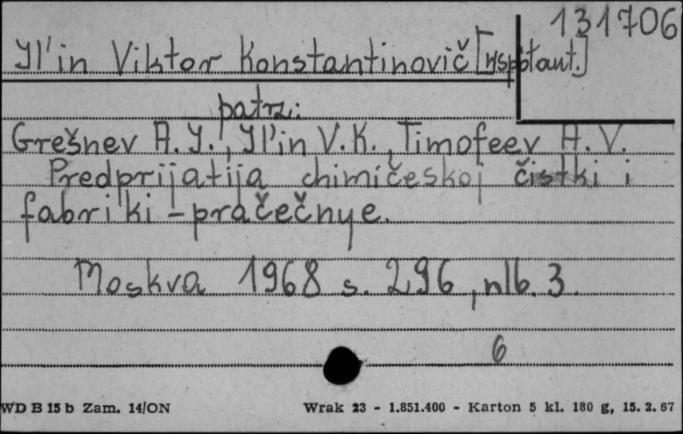 131706
Il'in Viktor Konstantinovič [współaut.]
patrz:
Grešnev A. I., Il'in V.K., Timofeev A. V.
Predprijatija chimičeskoj čistki i
fabriki - pračečnye.
Moskva 1968 s. 296, nlb. 3.
6
WD B 15 b Zam. 14/ON Wrak 23 - 1.851.400 - Karton 5 kl. 180 g, 15. 2. 67